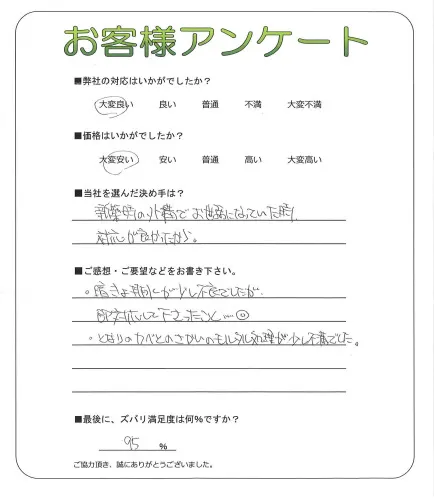 お客様アンケート
■弊社の対応はいかがでしたか？
大変良い 良い 普通 不満 大変不満
■価格はいかがでしたか？
大変安い 安い 普通 高い 大変高い
■当社を選んだ決め手は？
新築時の外構でお世話になっていた時、
対応が良かったから。
■ご感想・ご要望などをお書き下さい。
が少し不良でしたが、
即対応して下さったこと…◎
・となりのカベとのさかいのモルタル処理が少し不満でした。
■最後に、ズバリ満足度は何%ですか？
95 %
ご協力頂き、誠にありがとうございました。